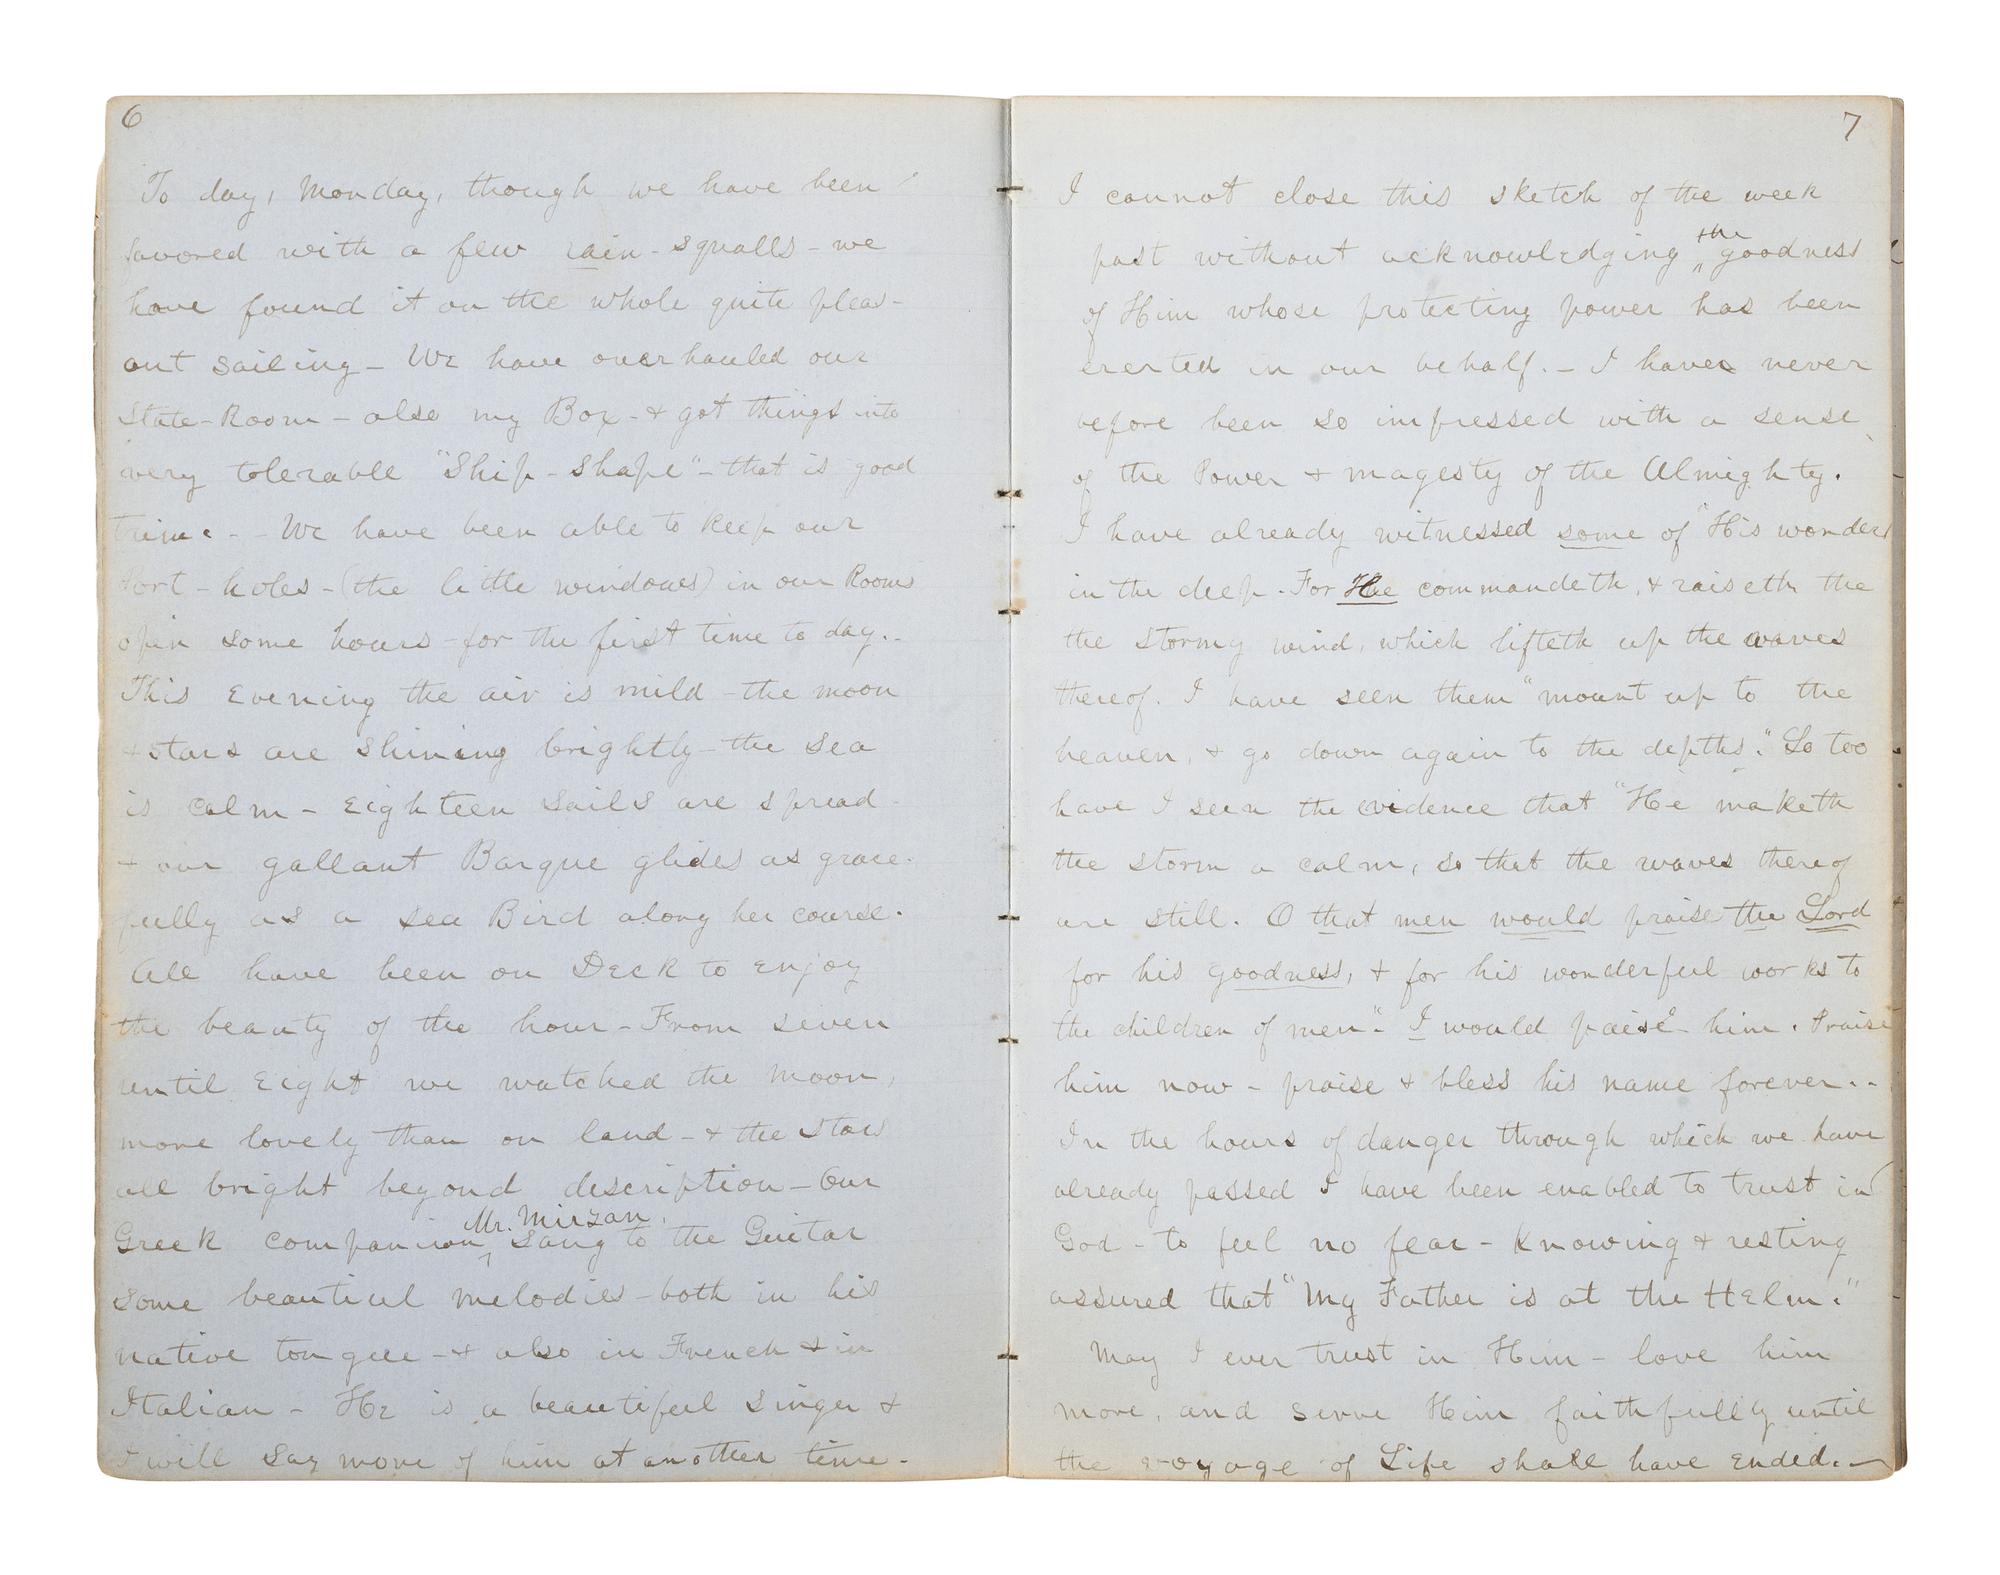 6
To day, Monday, though we have been
favored with a few rain-squalls - we
have found it on the whole quite pleas-
ant sailing - We have overhauled our
State-Room - also my Box - & got things into
very tolerable "Ship-Shape" - that is good
trim. - We have been able to keep our
Port-holes - (the little windows) in our Rooms
open some hours - for the first time to day. -
This Evening the air is mild - the moon
& stars are shining brightly - the sea
is calm - Eighteen Sails are spread
& our gallant Barque glides as grace-
fully as a sea Bird along her course.
All have been on Deck to enjoy
the beauty of the hour - From seven
until Eight we watched the moon,
more lovely than on land - & the stars
all bright beyond description - Our
Mr. Mirzan.
Greek companion ^ sang to the Guitar
some beautiul melodies - both in his
native tongue - & also in French & in
Italian - He is a beautiful singer &
I will say more of him at another time.
7
I cannot close this sketch of the week
past without acknowledging ^the goodness
of Him whose protecting power has been
exerted in our behalf. - I have never
before been so impressed with a sense
of the Power & magesty of the Almighty.
I have already witnessed some of "His wonders
in the deep. For He commandeth, & raiseth the
the stormy wind, which lifteth up the waves
thereof. I have seen them "mount up to the
heaven, & go down again to the depths." So too
have I seen the evidence that "He maketh
the storm a calm, so that the waves thereof
are still. O that men would praise the Lord
for his goodness, & for his wonderful works to
the children of men". I would paise him. Praise
him now - praise & bless his name forever. -
In the hours of danger through which we have
already passed I have been enabled to trust in
God - to feel no fear - Knowing & resting
assured that "My Father is at the Helm."
May I ever trust in Him - love him
more, and serve Him faithfully until
the voyage of Life shall have Ended. -